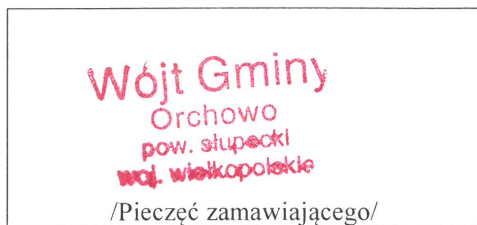 Wójt Gminy
Orchowo
pow. słupecki
woj. wielkopolskie
/Pieczęć zamawiającego/